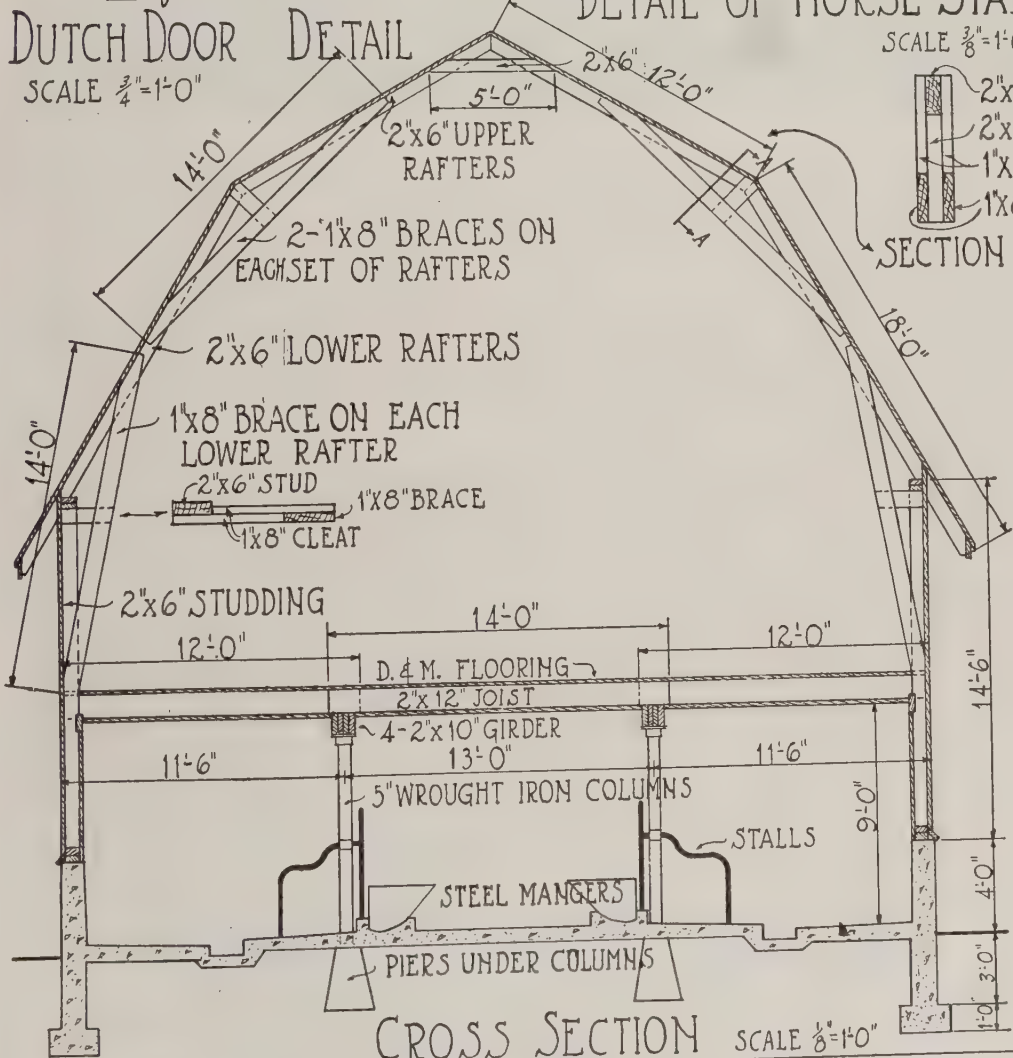 DUTCH DOOR DETAIL
SCALE 3/4"=1'-0"
DETAIL OF HORSE
SCALE 3/8"=1'-
2"x6"
12'-0"
5'-0"
14'-0"
2"x6" UPPER
RAFTERS
A
A
2-1"x8" BRACES ON
EACH SET OF RAFTERS
SECTION
18'-0"
2"x6" LOWER RAFTERS
14'-0"
1"x8" BRACE ON EACH
LOWER RAFTER
2"x6" STUD
1"x8" BRACE
1"x8" CLEAT
2"x6" STUDDING
14'-0"
12'-0"
12'-0"
D. & M. FLOORING
2"x12" JOIST
4-2"x10" GIRDER
14'-6"
11'-6"
13'-0"
11'-6"
5" WROUGHT IRON COLUMNS
9'-0"
STALLS
STEEL MANGERS
4'-0"
PIERS UNDER COLUMNS
3'-0"
1'-0"
CROSS SECTION
SCALE 1/8"=1'-0"